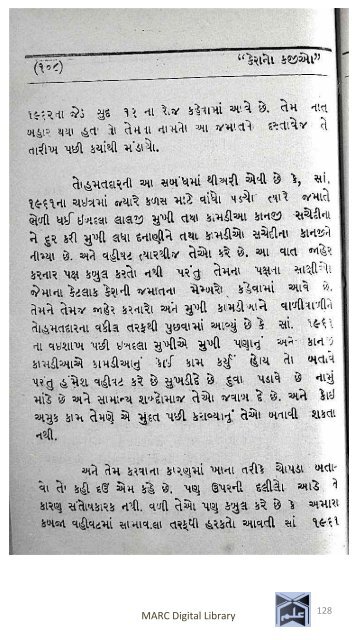 (૧૦૮) “કેરાનો કજીઓ”
૧૯૬૨ના જેઠ સુદ ૧૨ ના રોજ કહેવામાં આવે છે. તેમ નાત
બહાર થયા હતા તો તેમના નામનો આ જમાતને દસ્તાવેજ તે
તારીખ પછી કયાંથી મંડાયો.
તોહમતદારની આ સબંધમાં થીઅરી એવી છે કે, સાં.
૧૯૬૧ના ચઇત્રમાં જ્યારે કળસ માટે વાંધો પડ્યો ત્યારે જમાતે
ભેળી થઈ ઇબદલા લાલજી મુખી તથા કામડીઆ કાનજી સચેદીના
ને દુર કરી મુખી લધા દનાણીને તથા કામડીઓ સચેદીના કાનજીને
નીમ્યા છે. અને વહીવટ ત્યારથીજ તેઓ કરે છે. આ વાત જાહેર
કરનાર પક્ષ કબુલ કરતો નથી પરંતુ તેમના પક્ષના સાક્ષીઓ
જેમાના કેટલાક કેરાની જમાતના મેમ્બરો કહેવામાં આવે છે.
તેમને તેમજ જાહેર કરનારો અને મુખી કામડીઆને વાળીવાળીને
તોહમતદારના વકીલ તરફથી પુછવામાં આવ્યું છે કે સાં. ૧૯૬૧
ના વઇશાખ પછી ઇબદલા મુખીએ મુખી પણાનું અને કાનજી
કામડીઆએ કામડીઆનું કાંઈ કામ કર્યું હોય તો બતાવે
પરંતુ હંમેશ વહીવટ કરે છે સુખડીદે છે દુવા પડાવે છે નામું
માંડે છે અને સામાન્ય શબ્દોમાજ તેઓ જવાબ દે છે. અને કોઇ
અમુક કામ તેમણે એ મુદત પછી કરાવ્યાનું તેઓ બતાવી શકતા
નથી.
અને તેમ કરવાના કારણમાં ખાના તરીકે ચોપડા બતા-
વો તો કહી દઉં એમ કહે છે. પણ ઉપરની દલીલો આડે તે
કારણ સંતોષકારક નથી. વળી તેઓ પણ કબુલ કરે છે કે અમારા
કબજા વહીવટમાં સામાવાલા તરફથી હરકતો આવતી સાં ૧૯૬૧
MARC Digital Library
علم
128